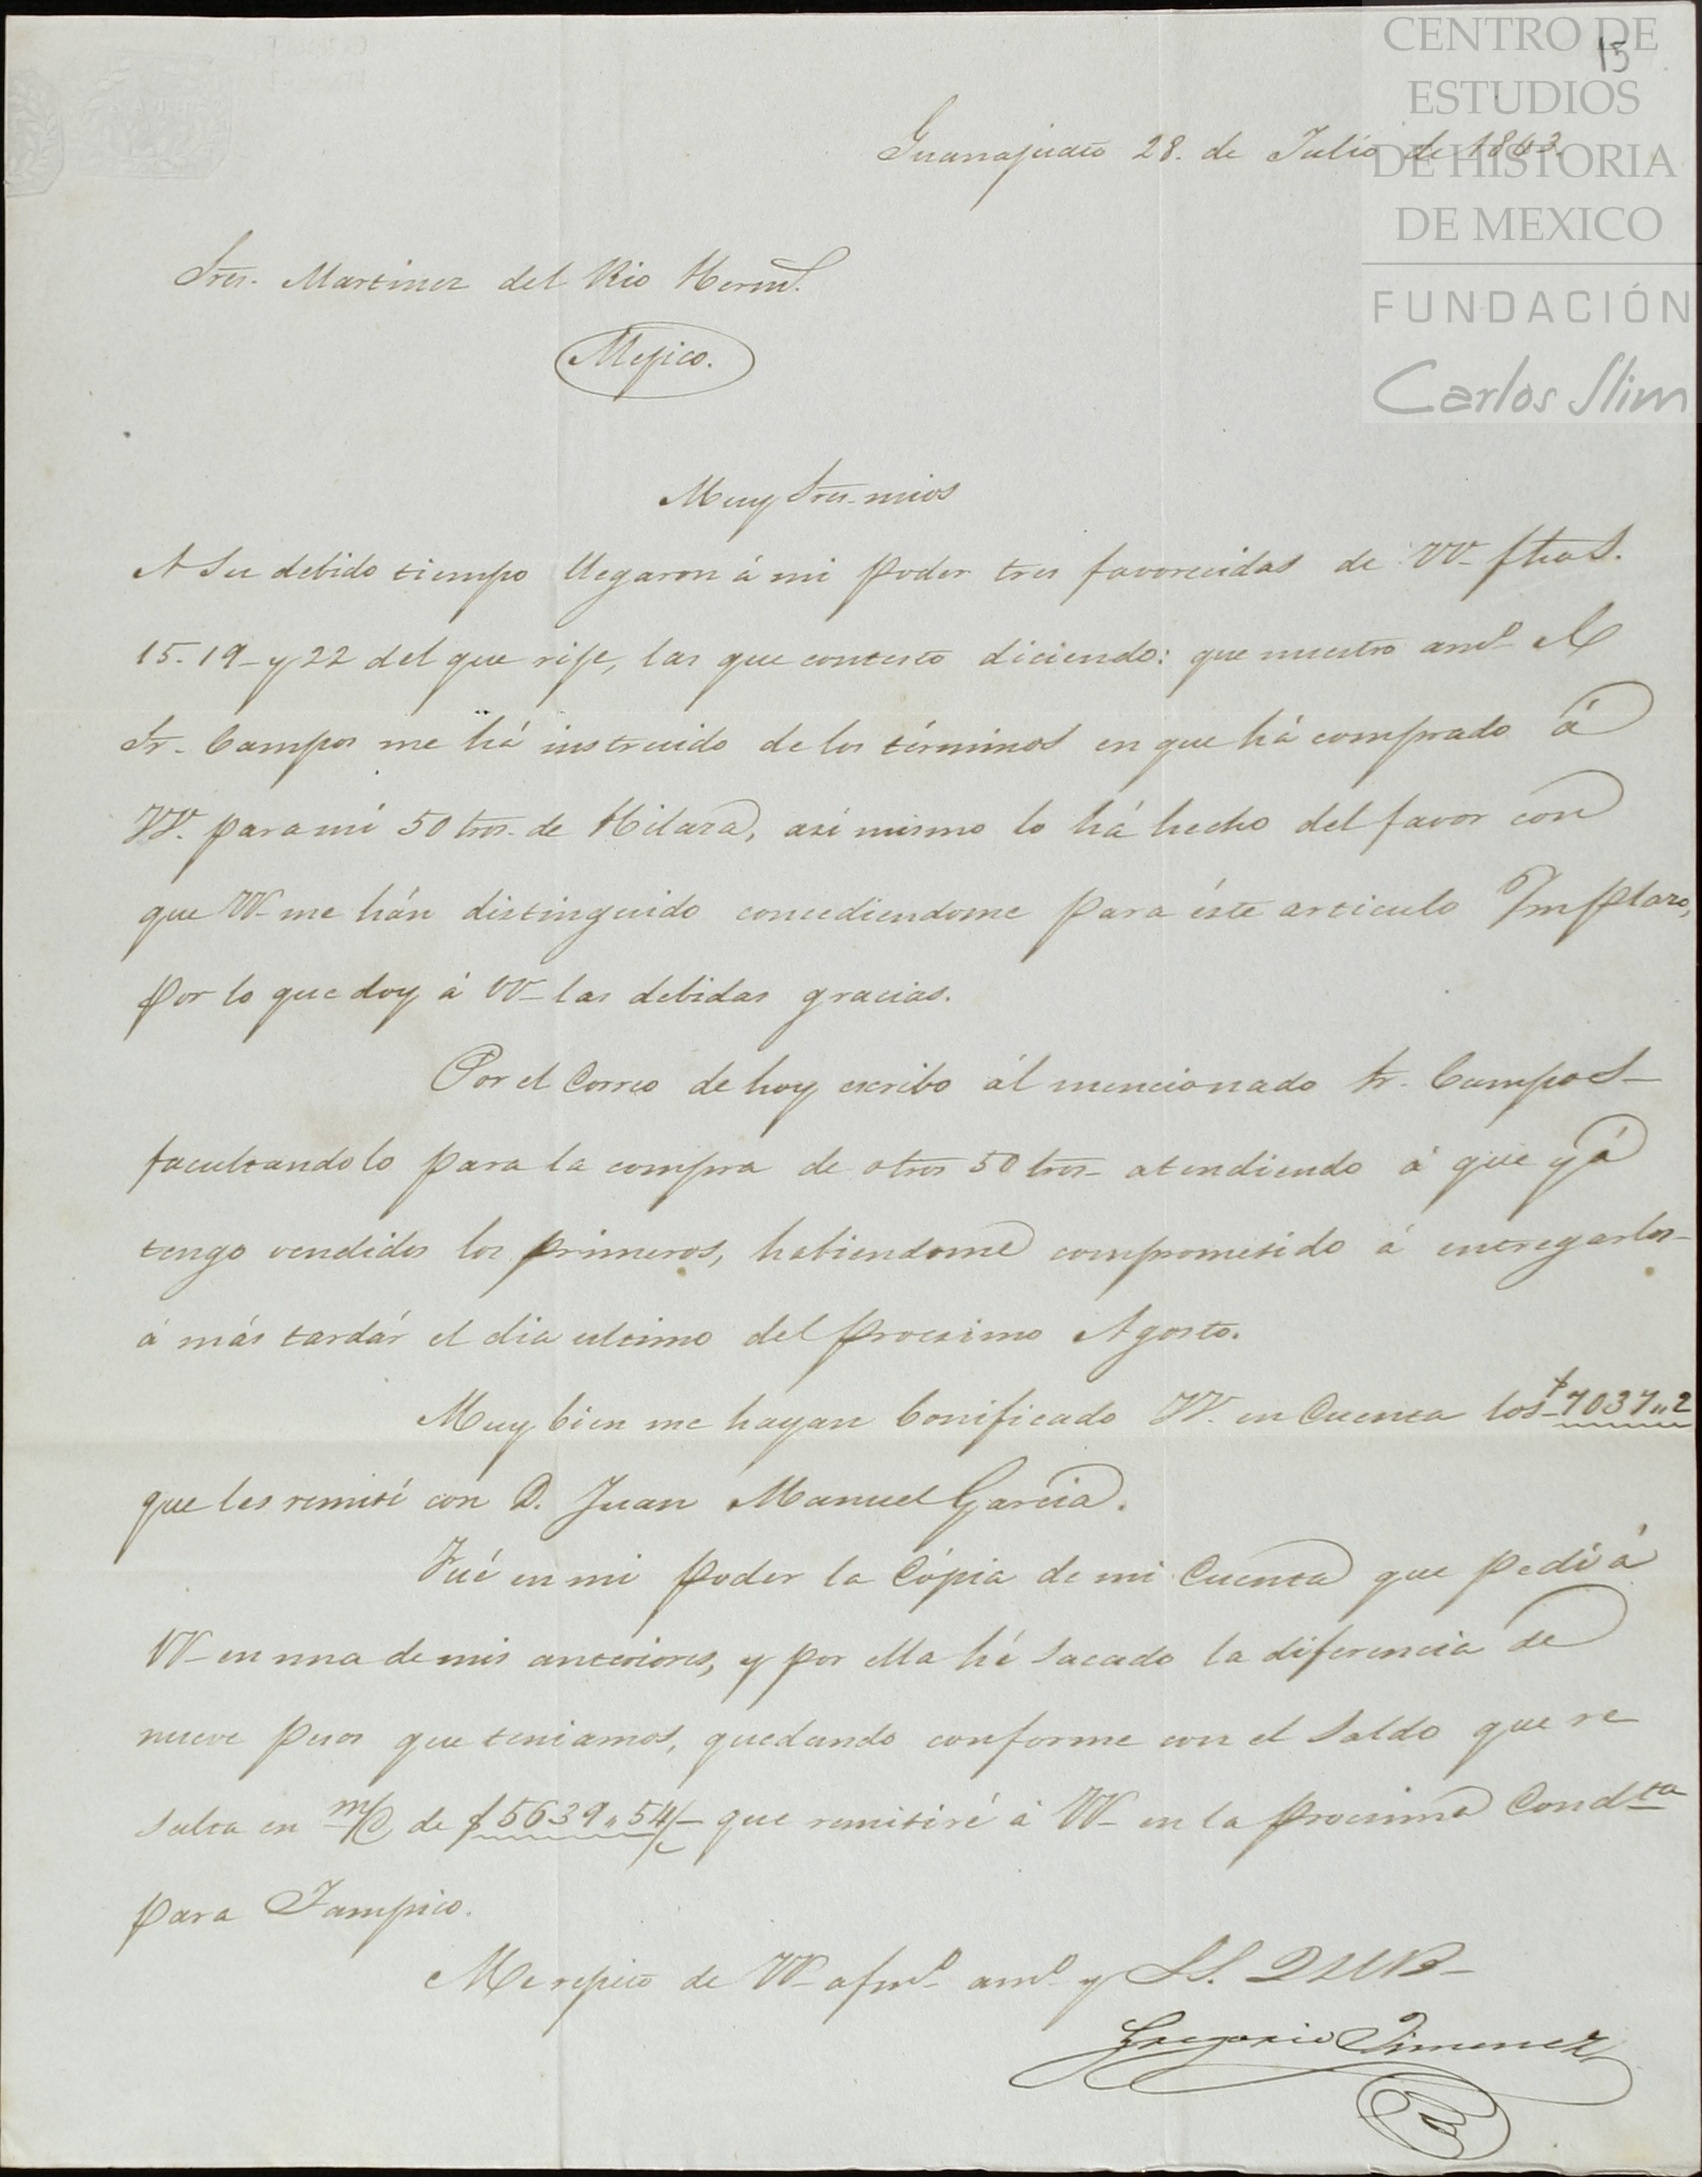 CENTRO DE
ESTUDIOS
DE HISTORIA
DE MEXICO
FUNDACIÓN
Carlos Slim
15
Guanajuato 28. de Julio de 1863.
Sres. Martinez del Rio Herms.
Mejico.
Muy Sres. mios
A su debido tiempo llegaron á mi poder tres favorecidas de VV- fhas.
15. 19- y 22 del que rije, las que contesto diciendo: que nuestro amo. el
Sr. Campos me há instruido de los términos en que há comprado á
VV. para mí 50 tros. de Hilaza, asi mismo lo há hecho del favor con
que VV- me hán distinguido concediendome para éste articulo plazo,
por lo que doy á VV- las debidas gracias.
Por el Correo de hoy escribo ál mencionado Sr. Campos-
facultandolo para la compra de otros 50 tros- atendiendo á que yá
tengo vendidos los primeros, habiendome comprometido á entregarlos-
á más tardár el dia ultimo del procsimo Agosto.
Muy bien me hayan bonificado VV. en Cuenta los $7037,,2
que les remití con D. Juan Manuel Garcia.
Fué en mi poder la Cópia de mi Cuenta que pedí á
VV- en una de mis anteriores, y por ella hé sacado la diferencia de
nueve pesos que teniamos, quedando conforme con el Saldo que re
sulta en m/c de $5639,,54/c- que remitiré á VV- en la procsima Condta
para Tampico.
Me repito de VV- afmo. amo. y SS. QSMB-
Gregorio Jimenez